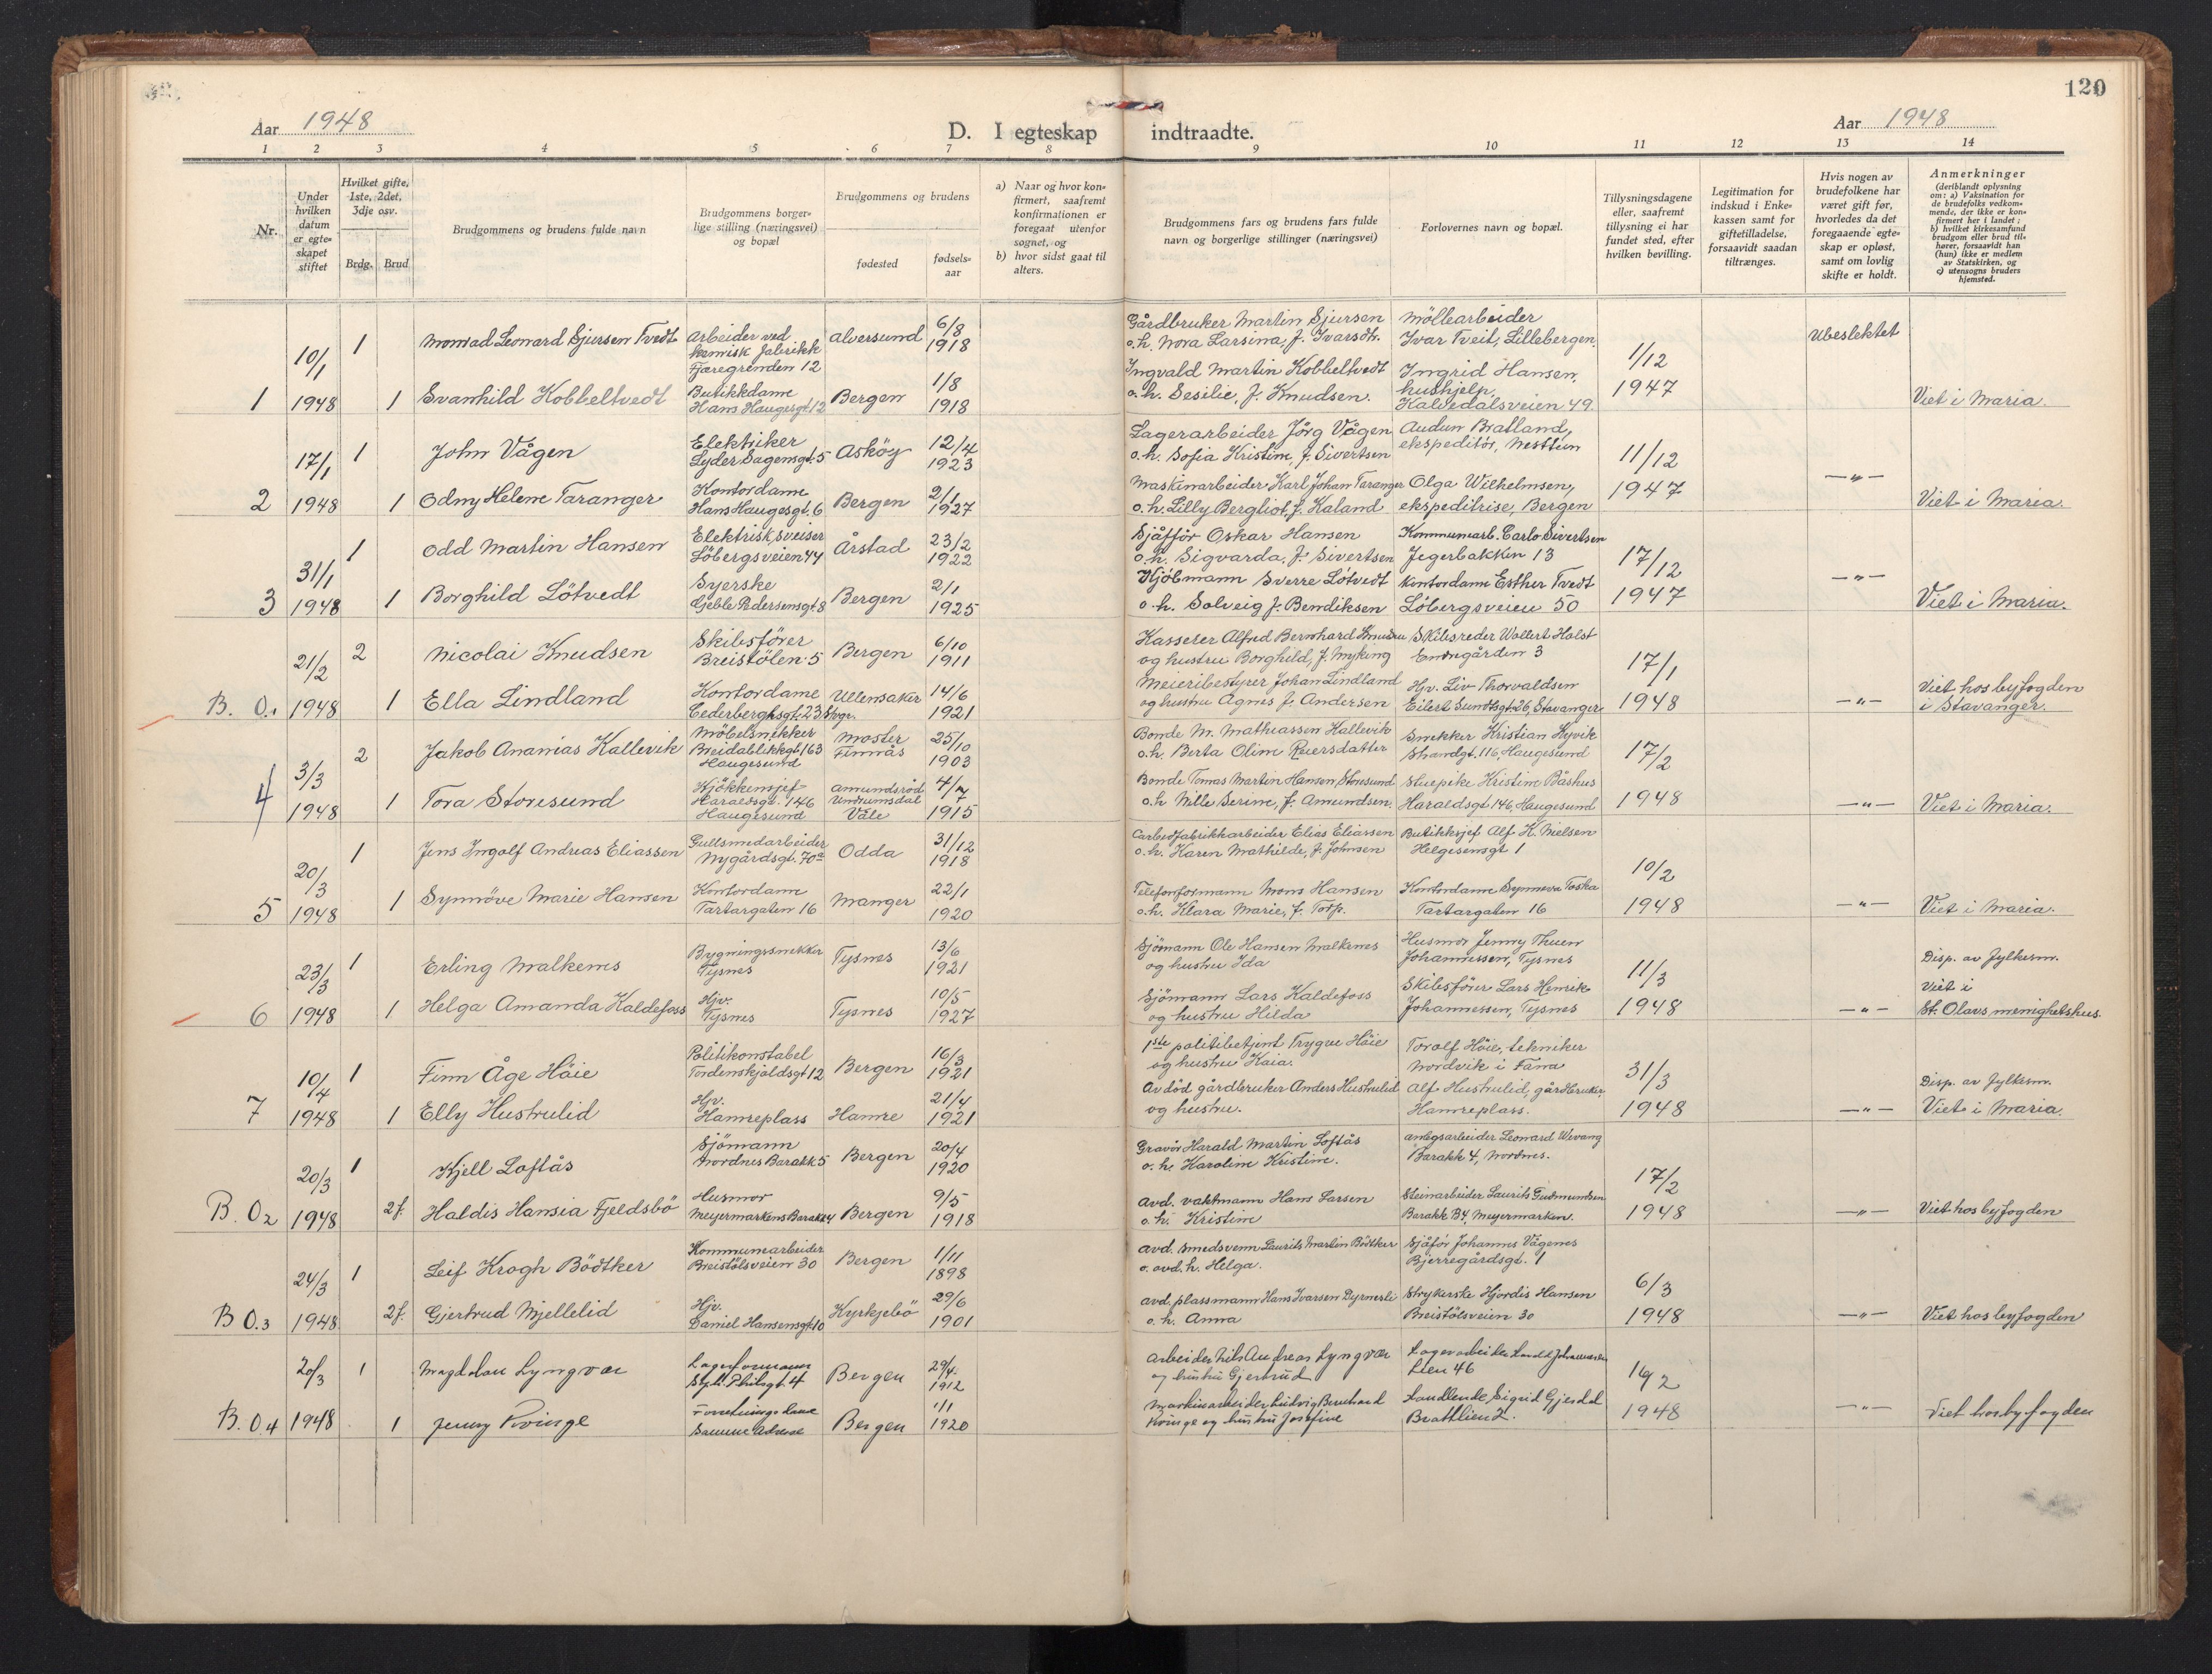 120
Aar 1948
D. I egteskap indtraadte.
Aar 1948
1 2 3 4 5 6 7 8 9 10 11 12 13 14
Nr.
Under hvilken datum er egte-skapet stiftet
Hvilket gifte, 1ste, 2det, 3dje osv.
Brdg. Brud
Brudgommens og brudens fulde navn
Brudgommens borger-lige stilling (næringsvei) og bopæl
Brudgommens og brudens
fødested
fødsels-aar
a) Naar og hvor kon-firmert, saafremt konfirmationen er foregaat utenfor sognet, og
b) hvor sidst gaat til alters.
Brudgommens fars og brudens fars fulde navn og borgerlige stillinger (næringsvei)
Forlovernes navn og bopæl.
Tillysningsdagene eller, saafremt tillysning ei har fundet sted, efter hvilken bevilling.
Legitimation for indskud i Enke-kassen samt for giftetilladelse, forsaavidt saadan tiltrænges.
Hvis nogen av brudefolkene har været gift før, hvorledes da det foregaaende egte-skap er opløst, samt om lovlig skifte er holdt.
Anmerkninger (deriblandt oplysning om: a) Vaksination for de brudefolks vedkom-mende, der ikke er kon-firmert her i landet; b) hvilket kirkesamfund brudgom eller brud til-hører, forsaavidt han (hun) ikke er medlem av Statskirken, og c) utensogns bruders hjemsted.
10/1 1 Monrad Leonard Sjursen Tvedt Arbeider ved kemisk fabrikk Fjæregrenden 12 Alversund 6/8 1918 Gårdbruker Martin Sjursen o.h. Nora Larsina, f. Ivarsdtr. Møllearbeider Ivar Tveit, Lillebergen. 1/12 Ubeslektet
1 1948 1 Svanhild Kobbeltvedt Butikkdame Hans Haugesgt 12 Bergen 1/8 1918 Ingvald Martin Kobbeltvedt o.h. Sesilie, f. Knudsen. Ingrid Hansen, hushjelp, Kalvedalsveien 49 1947 Viet i Maria.
17/1 1 John Vågen Elektriker Lyder Sagensgt. 5 Askøy 12/4 1923 Lagerarbeider Jörg Vågen o.h. Sofia Kristine, f. Sivertsen Audun Bratland, ekspeditör, Nesttun 11/12
2 1948 1 Odny Helene Taranger Kontordame Hans Haugesgt. 6 Bergen 2/1 1927 Maskinarbeider Karl Johan Taranger o.h. Lilly Bergliot, f. Kaland Olga Wilhelmsen, ekspeditrise, Bergen 1947 —"— Viet i Maria.
31/1 1 Odd Martin Hansen Elektrisk sveiser Löbergsveien 44 Årstad 23/2 1922 Sjåfför Oskar Hansen o.h. Sigvarda, f. Sivertsen Kommunearb. Carlo Sivertsen Jegerbakken 13 17/12
3 1948 1 Borghild Lötvedt Syerske Geble Pedersensgt 8 Bergen 2/1 1925 Kjöbmann Sverre Lötvedt o.h. Solveig f. Bendiksen Kontordame Esther Tvedt Löbergsveien 50 1947 —"— Viet i Maria.
21/2 2 Nicolai Knudsen Skibsförer Breistölen 5 Bergen 6/10 1911 Kasserer Alfred Bernhard Knudsen og hustru Borghild, f. Myking Skibsreder Wollert Holst Endregården 3 17/1
B. O.1 1948 1 Ella Lindland Kontordame Cederberghsgt. 23 Stvgr. Ullensaker 14/6 1921 Meieribestyrer Johan Lindland og hustru Agnes f. Andersen Hjv. Liv Thorvaldsen Eilert Sundtsgt. 26, Stavanger 1948 —"— Viet hos byfogden i Stavanger.
3/3 2 Jakob Ananias Kallevik Möbelsnekker Breidablikkgt 163 Haugesund Moster Finnås 25/10 1903 Bonde M. Mathiassen Kallevik o.h. Berta Oline Reiersdatter Snekker Kristian Kyvik Strandgt. 116, Haugesund 17/2
4 1948 1 Tora Storesund Kjökkensjef Haraldsgt. 146 Haugesund Amundsröd Undrumsdal Våle 4/7 1915 Bonde Tomas Martin Hansen Storesund o.h. Nille Serine, f. Amundsen. Stuepike Kristine Båshus Haraldsgt 146, Haugesund 1948 —"— Viet i Maria.
20/3 1 Jens Ingolf Andreas Eliassen Gullsmedarbeider Nygårdsgt. 70a Odda 31/12 1918 Carbidfabrikkarbeider Elias Eliassen o.h. Karen Mathilde, f. Johnsen Butikksjef Alf K. Nielsen Helgesensgt 1 10/2
5 1948 1 Synnöve Marie Hansen Kontordame Tartargaten 16 Manger 22/1 1920 Telefonformann Mons Hansen o.h. Klara Marie, f. Torp. Kontordame Synneva Toska Tartargaten 16 1948 —"— Viet i Maria.
23/3 1 Erling Malkenes Bygningssnekker Tysnes Tysnes 13/6 1921 Sjömann Ole Hansen Malkenes og hustru Ida Husmor Jenny Thuen Johannessen, Tysnes 11/3 Disp. av fylkesm.
6 1948 1 Helga Amanda Kaldefoss Hjv. Tysnes Tysnes 10/5 1927 Sjömann Lars Kaldefoss og hustru Hilda Skibsförer Lars Henrik Johannessen, Tysnes 1948 —"— Viet i St. Olavs menighetshus.
10/4 1 Finn Åge Höie Politikonstabel Tordenskjoldsgt 12 Bergen 16/3 1921 1ste politibetjent Trygve Höie og hustru Kaia. Torolf Höie, tekniker Nordvik i Fana 31/3 Disp. av fylkesm.
7 1948 1 Elly Hustrulid Hjv. Hamreplass Hamre 21/4 1921 Avdöd gårdbruker Anders Hustrulid og hustru. Alf Hustrulid, gårdbruker, Hamreplass. 1948 —"— Viet i Maria.
20/3 1 Kjell Loftås Sjömann Nordnes Barakk 5 Bergen 20/4 1920 Gravör Harald Martin Loftås o.h. Karoline Kristine. Anlegsarbeider Leonard Wevang Barakk 4, Nordnes. 17/2
B. O2 1948 2f. Haldis Hansia Fjeldsbö Husmor Meyermarkens Barakk 4 Bergen 9/5 1918 Avd. vaktmann Hans Larsen o.h. Kristine Steinarbeider Laurits Gudmundsen Barakk B4, Meyermarken. 1948 —"— Viet hos byfogden
24/3 1 Leif Krogh Bödtker Kommunearbeider Breistölsveien 30 Bergen 1/11 1898 Avd. smedsvenn Laurits Martin Bödtker o. avd. h. Helga. Sjåför Johannes Vågenes Bjerregårdsgt. 1 6/3
B O.3 1948 2f. Gjertrud Mjellelid Hjv. Daniel Hansensgt 10 Kyrkjebö 29/6 1901 Avd. plassmann Hans Ivarsen Dyrnesli o. h. Anna Strykerske Hjördis Hansen Breistölsveien 30 1948 —"— Viet hos byfogden
20/3 1 Magdalon Lyngvær Lagerformann Bergen 29/4. 1912 Arbeider Nils Andreas Lyngvær og hustru Gjertrud Lagerarbeider Johannessen Lien 46 16/2
B. O4 1948 1 Jenny Kvinge Forretningsdame Samme Adresse Bergen 1/1 1920 Maskinarbeider Ludvig Bernhard Kvinge og hustru Josefine Sigrid Gjesdal Brattlien 2. 1948 —"— Viet hos byfogden